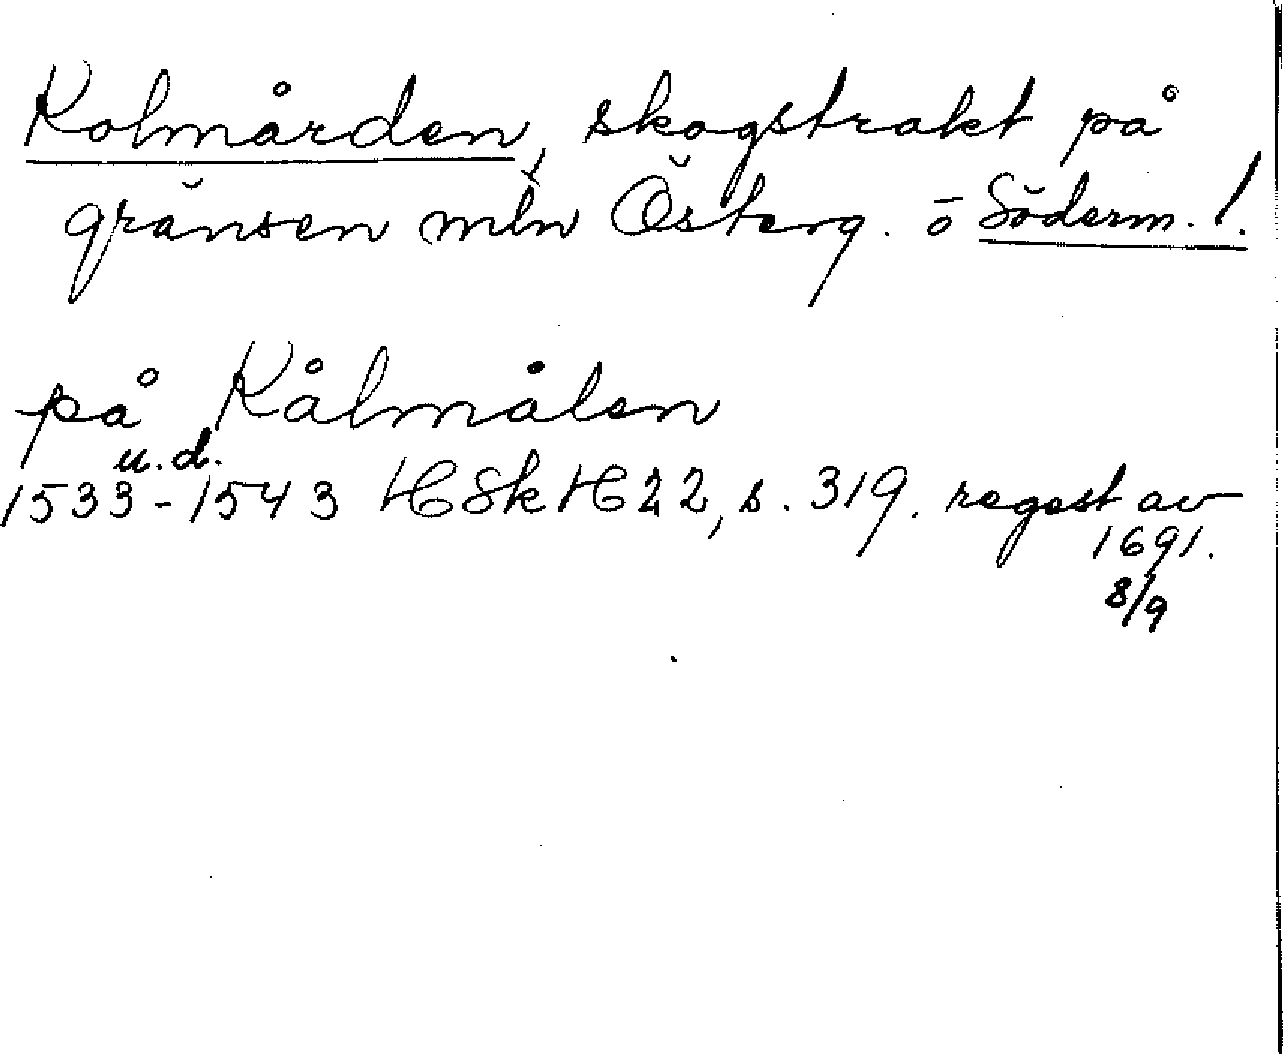 Kolmården, skogstrakt på
gränsen mln Österg. o Söderm. l.
på Kålmålen
u.d.
1533-1543 HSkH 22, s. 319. regest av
1691.
8/9